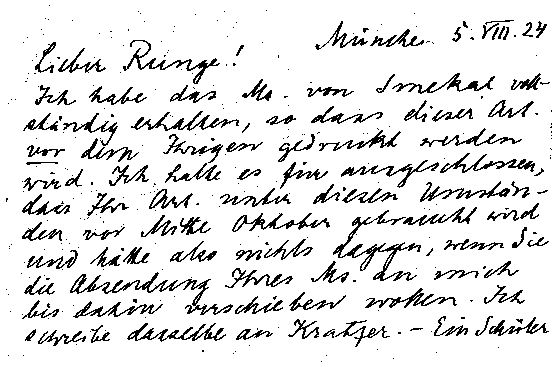 München 5. VIII. 24
Lieber Runge!
Ich habe das Ms. von Smekal voll-
ständig erhalten, so dass dieser Art.
vor dem Ihrigen gedruckt werden
wird. Ich halte es für ausgeschlossen,
dass Ihr Art. unter diesen Umstän-
den vor Mitte Oktober gebraucht wird
und hätte also nichts dagegen, wenn Sie
die Absendung Ihres Ms. an mich
bis dahin verschieben wollen. Ich
schreibe dasselbe an Kratzer. – Ein Schüler